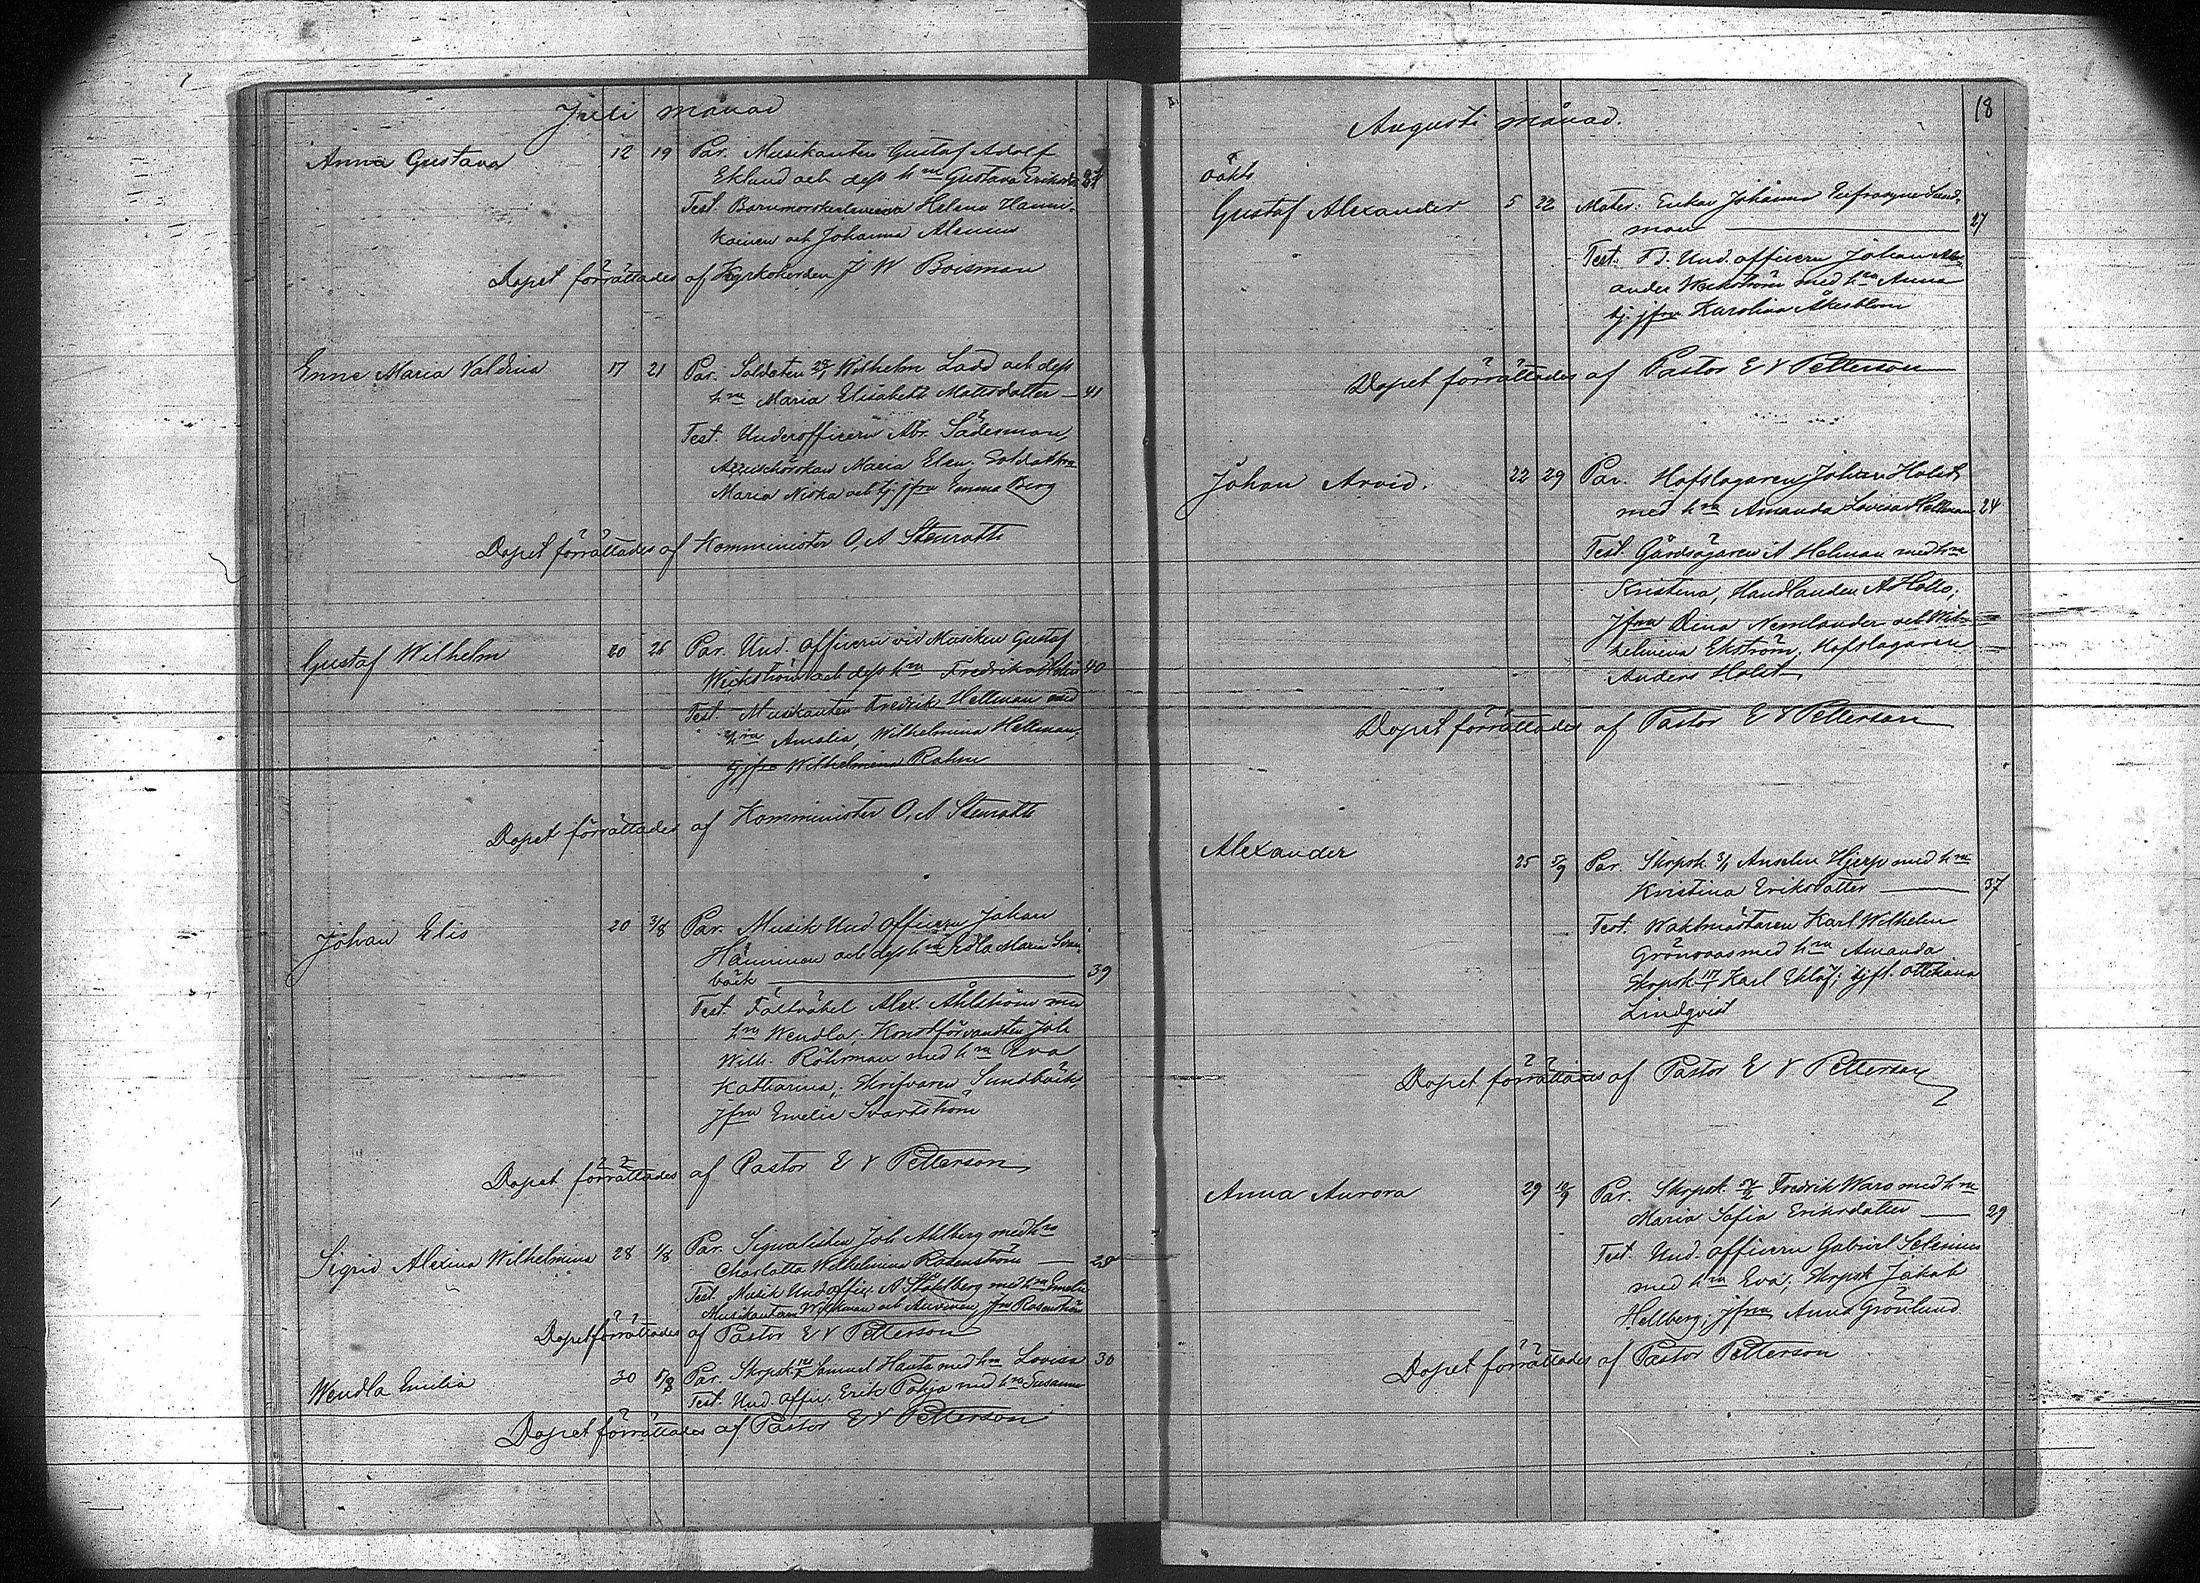 Juli månad
Anna Gustava 12 19 Par. Musikanten Gustaf Adolf
Eklund och dess hru Gustava Eriksd.
Test. Barnmorske Helena Hann-
kainen och Johanna Alenius
Dopet förrättades af Kyrkoherden J W Boisman
Enne Maria Valdina 17 21 Par. Soldaten Wilhelm Ladd och dess
hru Maria Elisabeth Mattsdotter — 41
Test. Underofficern Abr. Sädesman,
Maria Elen, Soldathru
Maria Niska och tj. jfru Emma Berg
Dopet förrättades af Komminister O, A Stenroth
Gustaf Wilhelm 20 26 Par. Und. officern vid Musiken Gustaf
Wickström och dess hru Fredrika 40
Test. Musikanten Fredrik Hellman med
hru Amalia, Wilhelmina Hellman,
tjjfru Wilhelmina Rahm
Dopet förrättades af Komminister O, A Stenroth
Johan Elis 20 3/8 Par. Musik Und officern Johan
Hänninen och dess hru Edla Maria Svan-
bäck — 39
Test. Fältväbel Alex. Ahlström med
hru Wendla; Konstförvandten Joh
Wilh. Röhrman med hru Eva
Katharina; Skrifvaren Sundbäck,
jfru Emelie Svartström
Dopet förrättades af Pastor E V Petterson
Sigrid Alexina Wilhelmina 28 1/8 Par. Signalisten Joh Ahlberg med hru
Charlotta Wilhelmina Rosenström —
Test. Musik Undoffic. A Stählberg med hru Emelie
Musikantern och jfru Rosenström
Dopet förrättades af Pastor E V Petterson
Wendla Emilia 30 5/8 Par. Skrpsk. Samuel Hauta med hru Lovisa 30
Test. Und. offic. Erik Pohja med hru Susanna
Dopet förrättades af Pastor E V Petterson
18
Augusti månad.
oäkta
Gustaf Alexander 5 22 Mater: Enkan Johanna Eufrosyne Sand-
man — 27
Test. F.d. Und. officern Johan Alex-
ander Weckström med hru Anna
tj. jfru Karolina Åkerblom
Dopet förrättades af Pastor E V Petterson
Johan Arvid. 22 29 Par. Hofslagaren Johan Holst
med hru Amanda Lovisa Hellman 24
Test. Gårdsägaren A Helman med hru
Kristina, Handlanden A Hollo;
jfrna Dina Nemlander och Wil-
helmina Ekström, Hofslagaren
Anders Holst
Dopet förrättades af Pastor E V Petterson
Alexander 25 5/9 Par. Skrpsk. 3/1 Anselm Hjerp med hru
Kristina Eriksdotter — 37
Test. Waktmästaren Karl Wilhelm
Grönroos med hru Amanda
Skrpsk. Karl Eklöf; tjjf. Ottiliana
Lindqvist
Dopet förrättades af Pastor E V Petterson
Anna Aurora 29 12/9 Par. Skrpsk. Fredrik Waro med hru
Maria Sofia Eriksdotter — 29
Test. Und. officern Gabriel Selenius
med hru Eva; Skrpsk Jakob
Hellberg, jfrun Anna Grönlund.
Dopet förrättades af Pastor Petterson